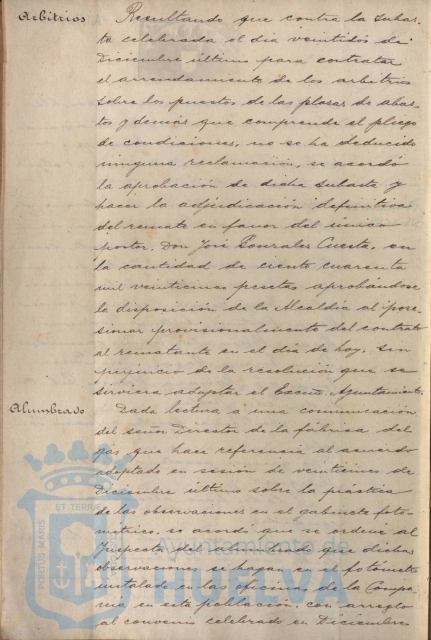 Arbitrios
Resultando que contra la subas-
ta celebrada el dia veintidos de
Diciembre último para contratar
el arrendamiento de los arbitrios
sobre los puestos de las plazas de abas-
tos y demás que comprende el pliego
de condiciones, no se ha deducido
ninguna reclamación, se acordó
la aprobación de dicha subasta y
hacer la adjudicación definitiva
del remate en favor del único
postor, Don José Gonzales Cuesta, en
la cantidad de ciento cuarenta
mil veinticinco pesetas aprobándose
la disposición de la Alcaldia al pose-
sionar provisionalmente del contrato
al rematante en el dia de hoy, sin
perjuicio de la resolución que se
sirviera adoptar el Excmo. Ayuntamiento.
Alumbrado
Dada lectura á una comunicación
del señor Director de la fábrica del
gas que hace referencia al acuerdo
adoptado en sesión de veintidos de
Diciembre último sobre la práctica
de las observaciones en el gabinete foto-
métrico, se acordó que se ordene al
Inspector del alumbrado que dichas
observaciones se hagan en el fotómetro
instalado en las oficinas de la Compa-
ñia en esta población, con arreglo
al convenio celebrado en Diciembre
PORTUS MARIS ET TERRAE
Ayuntamiento de
HUELVA